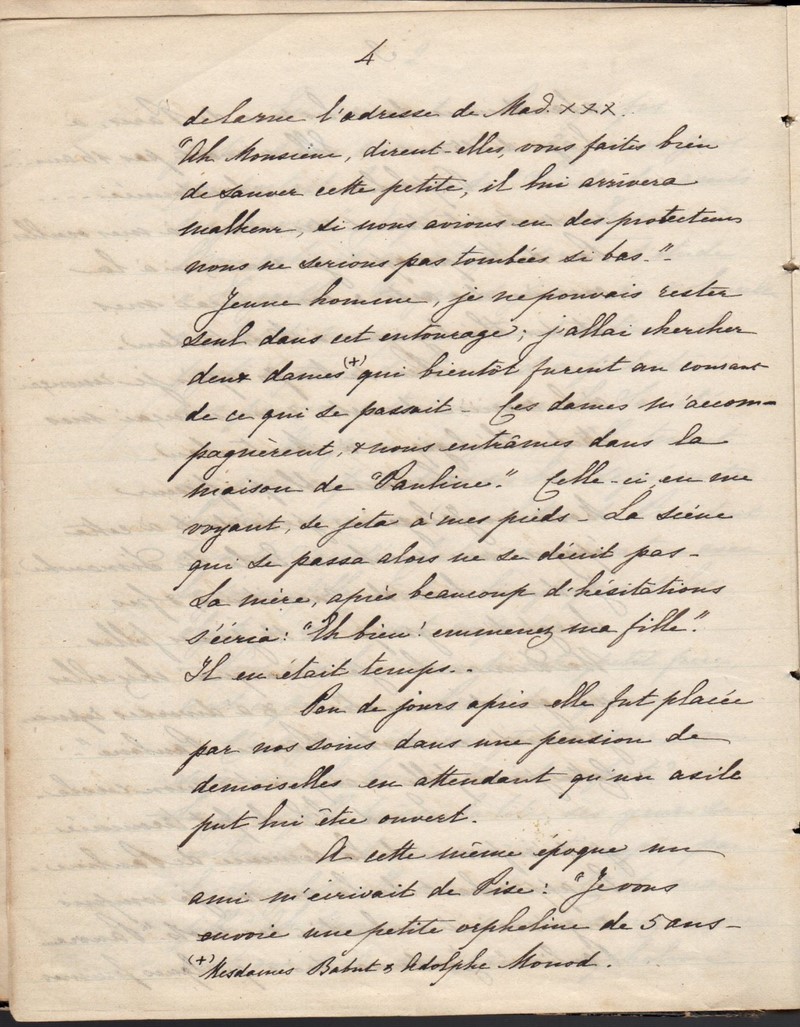 4
de larue l'adresse de Mad. xxx.
"Ah Monsieur, dirent-elles, vous faites bien
de sauver cette petite, il lui arrivera
malheur, si nous avions eu des protecteurs
nous ne serions pas tombées si bas."
Jeune homme, je ne pouvais rester
seul dans cet entourage; j'allai chercher
deux dames (+) qui bientôt furent au courant
de ce qui se passait - Ces dames m'accom-
pagnèrent, & nous entrâmes dans la
maison de "Pauline." Celle-ci, en me
voyant, se jeta à mes pieds - La scène
qui se passa alors ne se décrit pas -
La mère, après beaucoup d'hésitations
s'écria: "Eh bien! emmenez ma fille."
Il en était temps -
Peu de jours après elle fut placée
par nos soins dans une pension de
demoiselles en attendant qu'un asile
put lui être ouvert.
A cette même époque un
ami m'écrivait de Pise: "Je vous
envoie une petite orpheline de 5 ans -
(+) Mesdames Babut & Adolphe Monod.